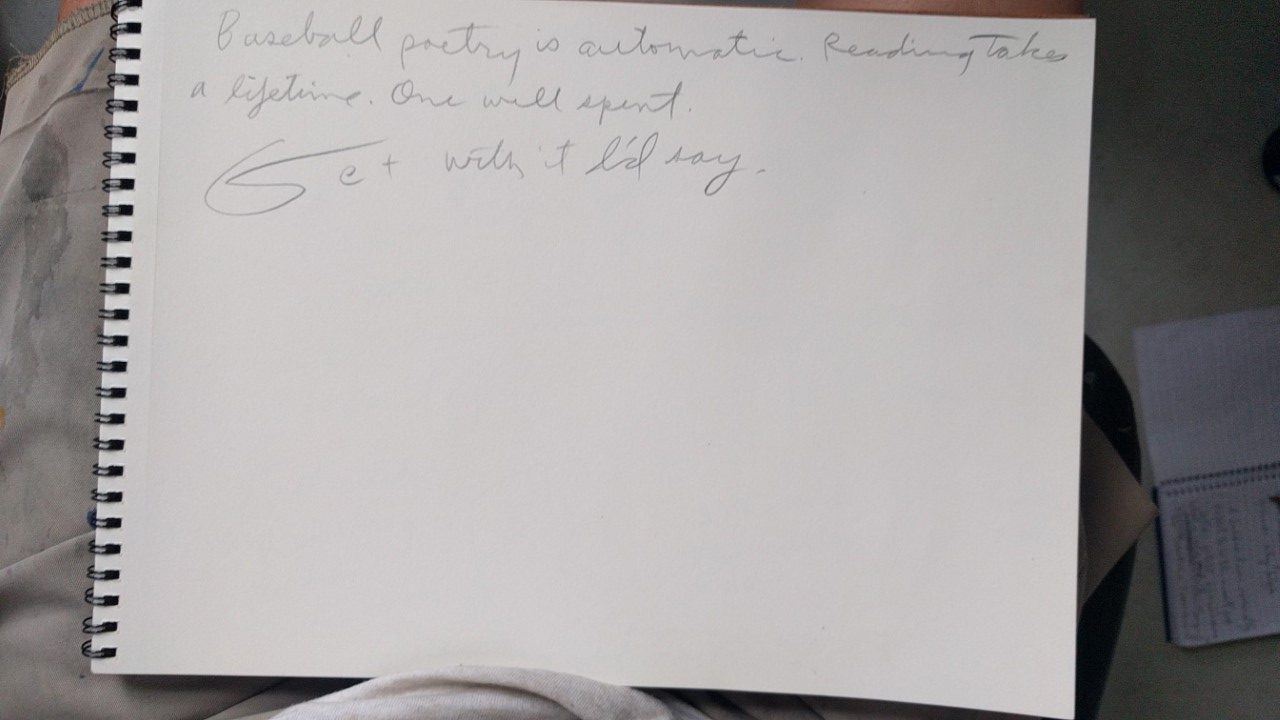 Baseball poetry is automatic. Reading Takes
a lifetime. One well spent.
Get with it I'd say.